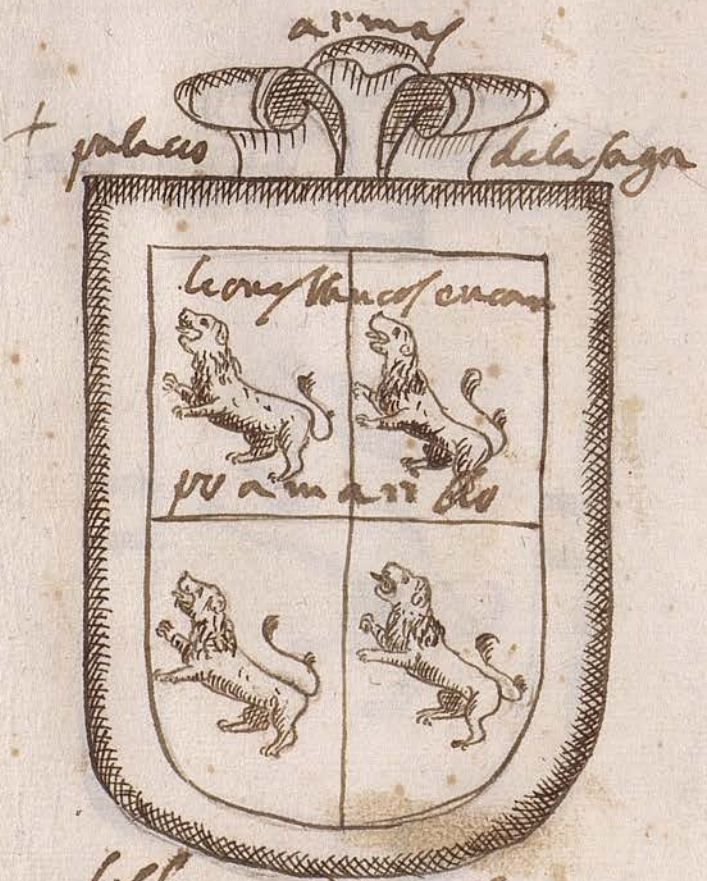 armas
+ palacio de la sagra
leones blancos en cam
po amarillo